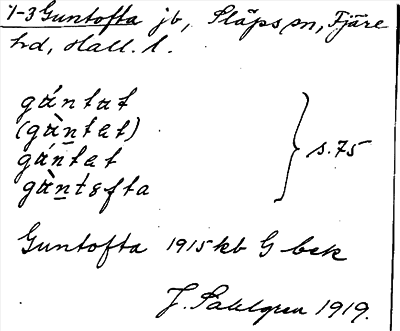 1-3 Guntofta jb, Släps sn, Fjäre
hd, Hall. l.
gántat
(gàntat)
gántet
gàntsfta
} s. 75
Guntofta 1915 kb G bek
J. Sahlgren 1919.